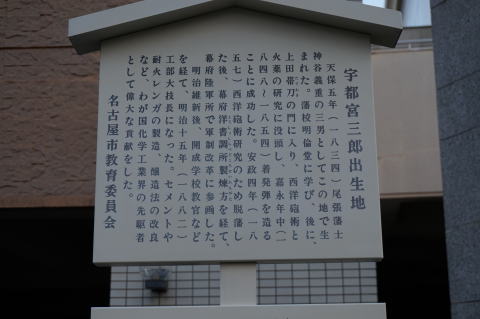 宇都宮三郎出生地
天保五年（一八三四）尾張藩士
神谷義重の三男としてこの地で生
まれた。藩校明倫堂に学び、後に、
上田帯刀の門に入り、西洋砲術と
火薬の研究に没頭し、嘉永年中（一
八四八〜一八五四）着発弾を造る
ことに成功した。安政四年（一八
五七）西洋砲術研究のため脱藩し
た後、幕府洋書調所製煉方を経て、
幕府陸軍所で軍制改革に参画した。
明治維新後、開成学校教官など
を経て、明治十五年（一八八二）
工部大技長になった。セメントや
耐火レンガの製造、醸造法の改良
など、わが国化学工業界の先駆者
として偉大な貢献をした。
名古屋市教育委員会